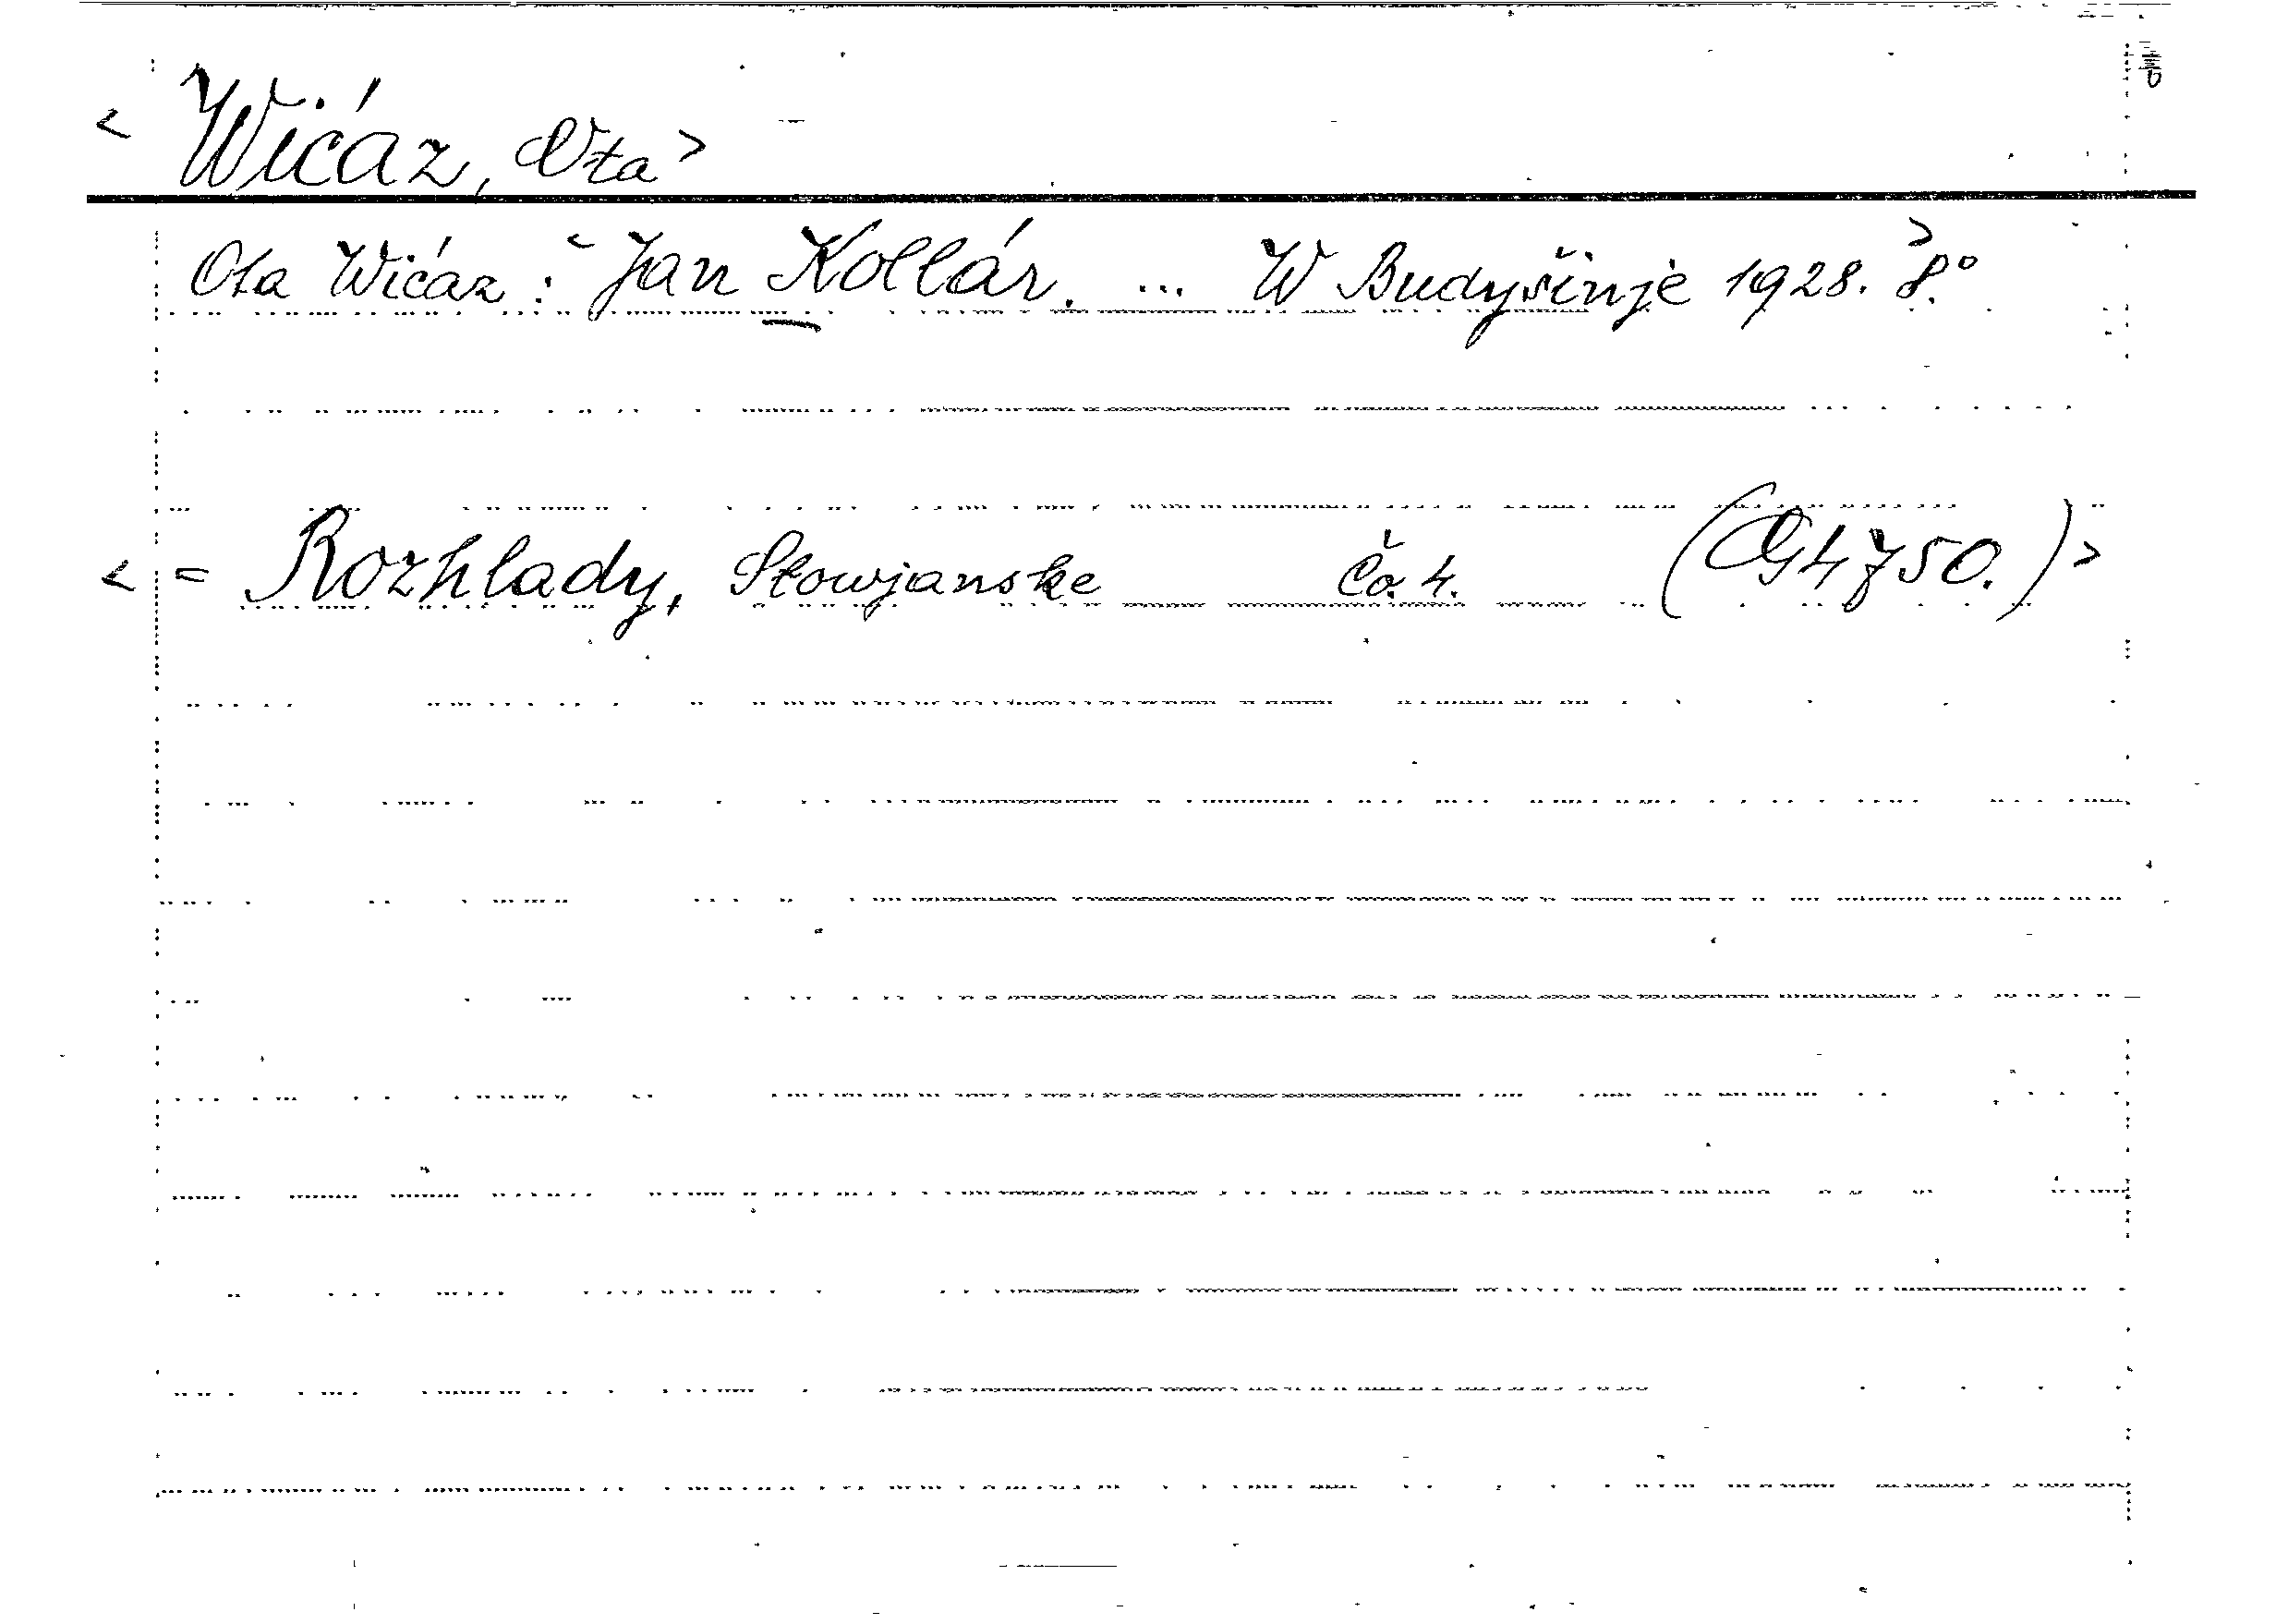 < Wićaz, Ota >
Ota Wićaz: < Jan Kollár. ... W Budyšinje 1928. 8.° >
< = Rozhlady, Słowjanske čo. 4. (G 4750.) >